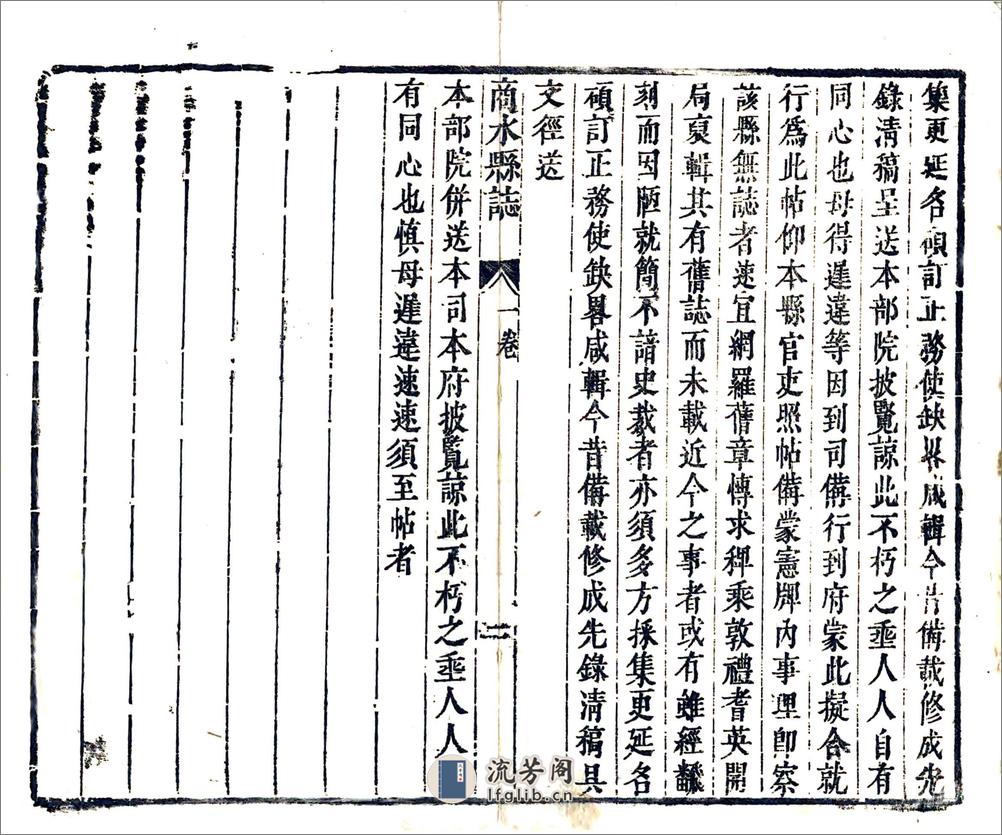 集更延名碩訂正務使缺畧咸輯今昔備載修成先
錄清稿呈送本部院披覽諒此不朽之垂人人自有
同心也毋得遲違等因到司備行到府蒙此擬合就
行爲此帖仰本縣官吏照帖備蒙憲牌內事理即察
該縣無誌者速宜網羅舊章慱求稗乘敦禮耆英開
局裒輯其有舊誌而未載近今之事者或有雖經繙
刻而因陋就簡不諳史裁者亦須多方採集更延名
碩訂正務使缺畧咸輯今昔備載修成先錄清稿具
文徑送
商水縣誌 一卷 二
本部院併送本司本府披覽諒此不朽之垂人人
有同心也慎毋遲違速速須至帖者
流芳阁
lfglib.cn